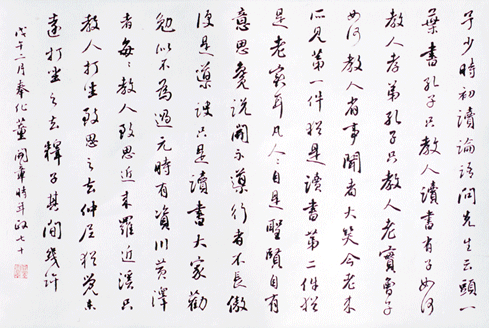 予少時初讀論語問先生云頭一
葉書孔子只教人讀書有子如何
教人孝弟孔子只教人老實曾子
如何教人省事聞者大笑今老來
所見第一件猶是讀書第二件猶
是老實耳凡人人自是聖賢自有
意思說開導行者不長傲
便是導諛只是讀書大家勸
勉似不為過元時有資川黃澤
者每每教人致思近來羅近溪只
教人打坐致思之去仲尼猶覺未
遠打坐之去釋子其間幾許
戊午二月奉化董開章時年政七十